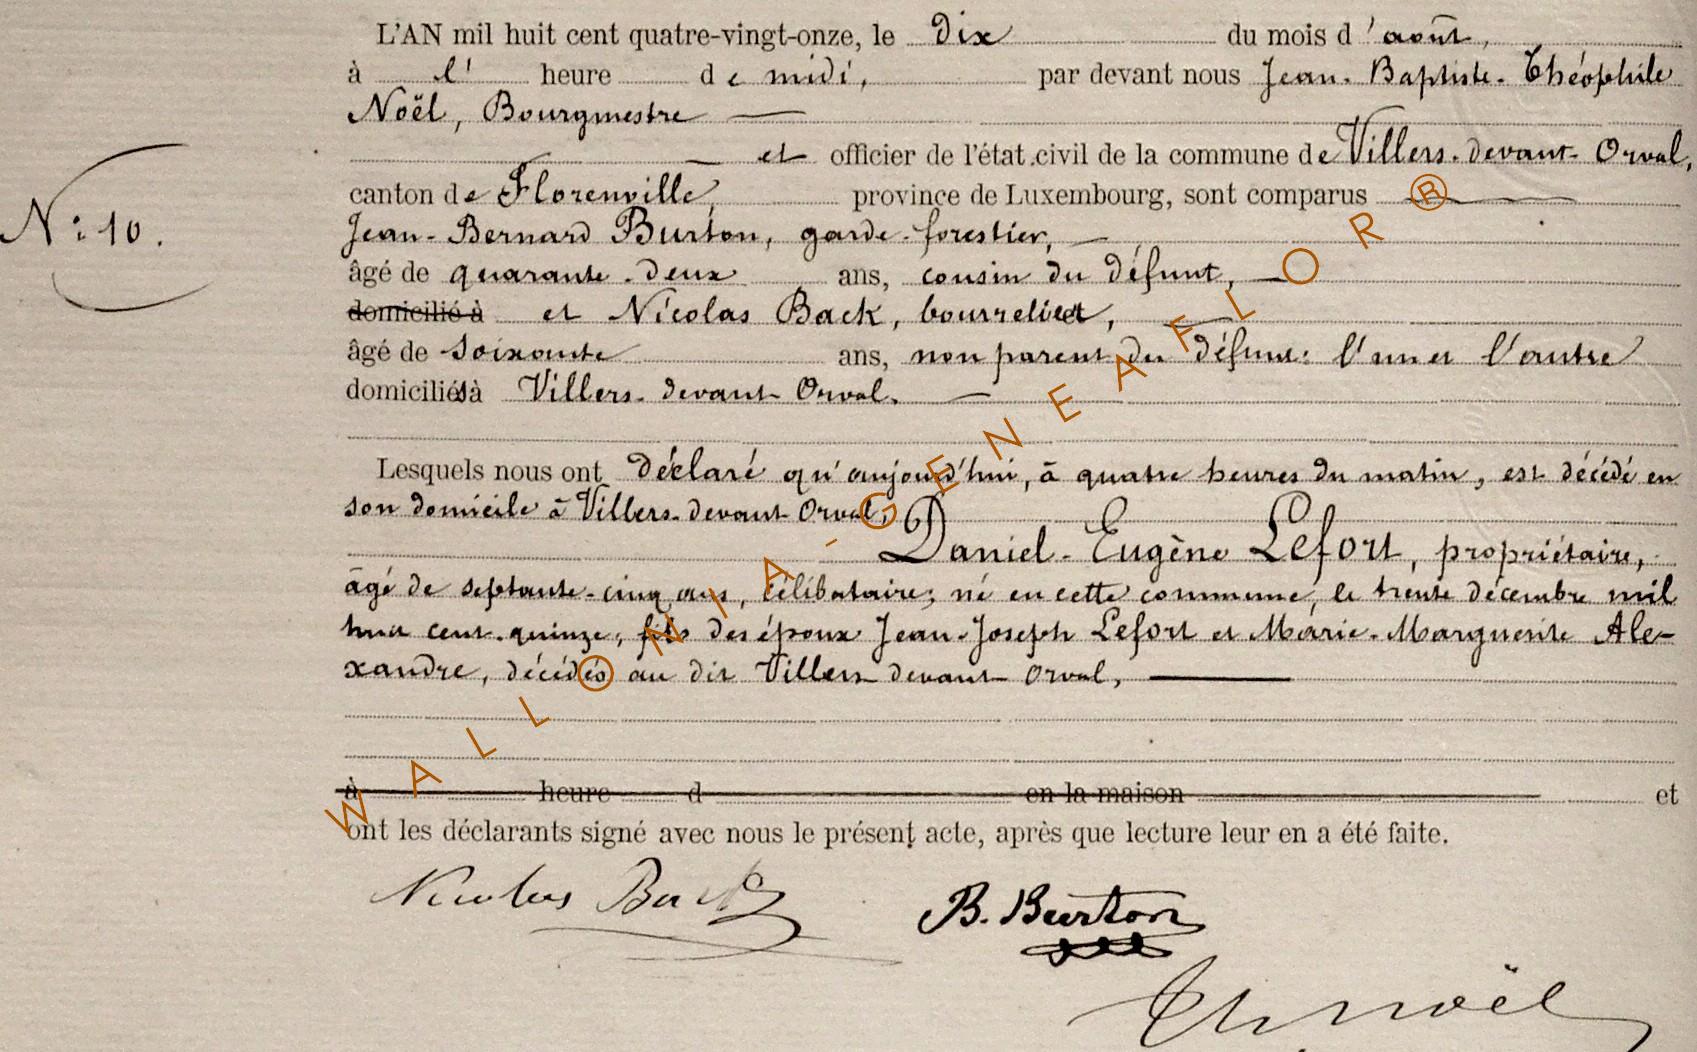 L'AN mil huit cent quatre-vingt-onze, le dix du mois d'août,
à l' heure de midi, par devant nous Jean-Baptiste-Théophile
Noël, Bourgmestre —
— et officier de l'état civil de la commune de Villers-devant-Orval,
canton de Florenville, province de Luxembourg, sont comparus —
N: 10.
Jean-Bernard Burton, garde-forestier, —
âgé de quarante-deux ans, cousin du défunt, —
domicilié à et Nicolas Back, bourrelier, —
âgé de soixante ans, non parent du défunt: l'un et l'autre
domiciliés à Villers-devant-Orval. —
Lesquels nous ont déclaré qu'aujourd'hui, à quatre heures du matin, est décédé en
son domicile à Villers-devant-Orval,
Daniel-Eugène Lefort, propriétaire,
âgé de septante-cinq ans, célibataire; né en cette commune, le trente décembre mil
huit cent-quinze, fils des époux Jean-Joseph Lefort et Marie-Marguerite Ale-
xandre, décédés au dit Villers-devant-Orval, —
à heure d en la maison et
ont les déclarants signé avec nous le présent acte, après que lecture leur en a été faite.
Nicolas Back B. Burton
Th Noël
WALLONIA-GENEAFLOR®